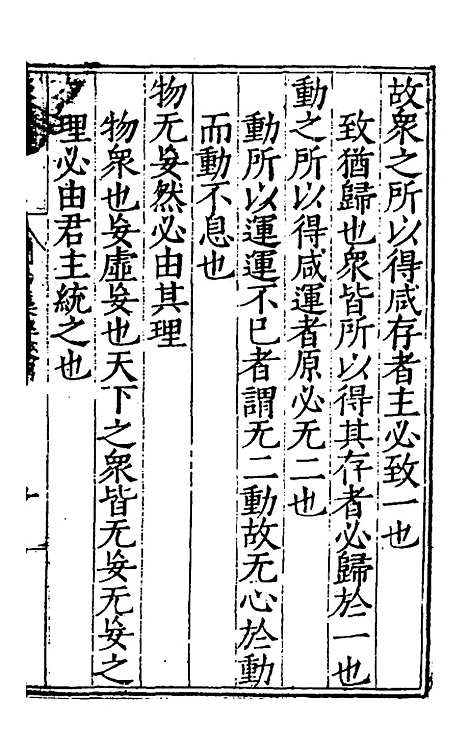 故衆之所以得咸存者主必致一也
致猶歸也衆皆所以得其存者必歸於一也
動之所以得咸運者原必无二也
動所以運運不已者謂无二動故无心於動
而動不息也
物无妄然必由其理
物衆也妄虛妄也天下之衆皆无妄无妄之
理必由君主統之也